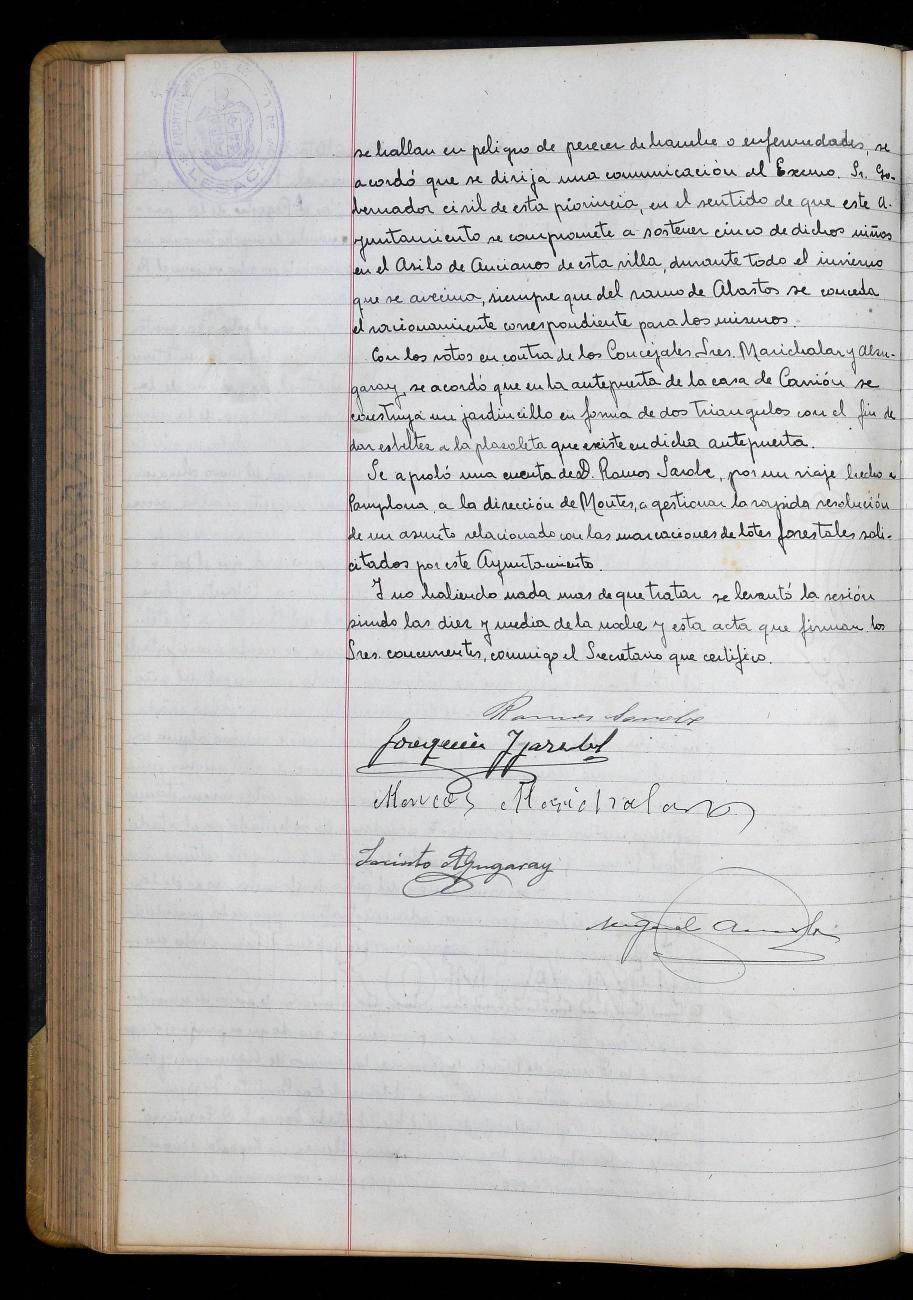 AYUNTAMIENTO DE
LESACA
se hallan en peligro de perecer de hambre o enfermedades, se
acordó que se dirija una comunicación al Excmo. Sr. Go-
bernador civil de esta provincia, en el sentido de que este A-
yuntamiento se compromete a sostener cinco de dichos niños
en el Asilo de Ancianos de esta villa, durante todo el invierno
que se avecina, siempre que del ramo de Abastos se conceda
el racionamiento correspondiente para los mismos.
Con los votos en contra de los Concejales Sres. Marichalar y Alzu-
garay, se acordó que en la antepuerta de la casa de Carrión se
construya un jardincillo en forma de dos triangulos con el fin de
dar esbeltez a la plazoleta que existe en dicha antepuerta.
Se aprobó una cuenta de D. Ramos Sarobe, por un viaje hecho a
Pamplona, a la dirección de Montes, a gestionar la rapida resolución
de un asunto relacionado con las marcaciones de lotes forestales soli-
citados por este Ayuntamiento.
Y no habiendo nada mas de que tratar se levantó la sesión
siendo las diez y media de la noche y esta acta que firman los
Sres. concurrentes, conmigo el Secretario que certifico.
Ramos Sarobe
Joaquin
Marcos Marichalar
Jacinto Alzugaray
Miguel